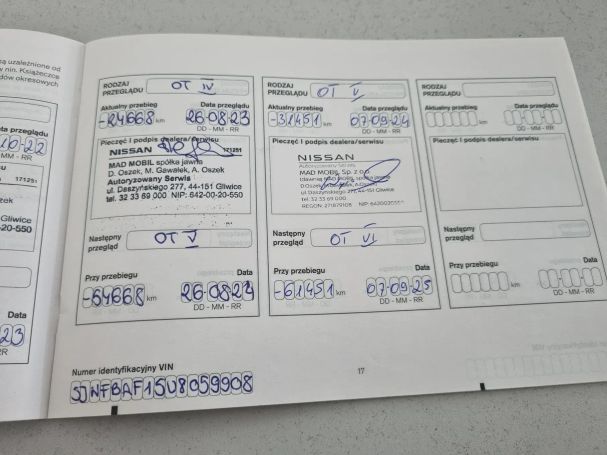 ą uzależnione od
w nin. Książeczce
dów okresowych
ta przeglądu
10-22
MM - RR
171251
Gliwice
-20-550
23
RODZAJ PRZEGLĄDU OT IV
Aktualny przebieg Data przeglądu
-24668 km 26-08-23
DD - MM - RR
Pieczęć i podpis dealera/serwisu
NISSAN 171251
MAD MOBIL spółka jawna
D. Oszek, M. Gawałek, A. Oszek
Autoryzowany Serwis
ul. Daszyńskiego 277, 44-151 Gliwice
tel. 32 33 69 000 NIP: 642-00-20-550
Następny przegląd OT V
Przy przebiegu Data
-54668 km 26-08-24
DD - MM - RR
RODZAJ PRZEGLĄDU OT V
Aktualny przebieg Data przeglądu
-31451 km 07-09-24
DD - MM - RR
Pieczęć i podpis dealera/serwisu
NISSAN
Autoryzowany Serwis
MAD MOBIL Sp. z o.o.
ul. Daszyńskiego 277, 44-151 Gliwice
tel. 32 33 69 000
Następny przegląd OT VI
Przy przebiegu Data
-61451 km 07-09-25
DD - MM - RR
RODZAJ PRZEGLĄDU
Aktualny przebieg Data przeglądu
km
DD - MM - RR
Pieczęć i podpis dealera/serwisu
Następny przegląd
Przy przebiegu Data
km
DD - MM - RR
Numer identyfikacyjny VIN
SJNFBAF15U8059908
17